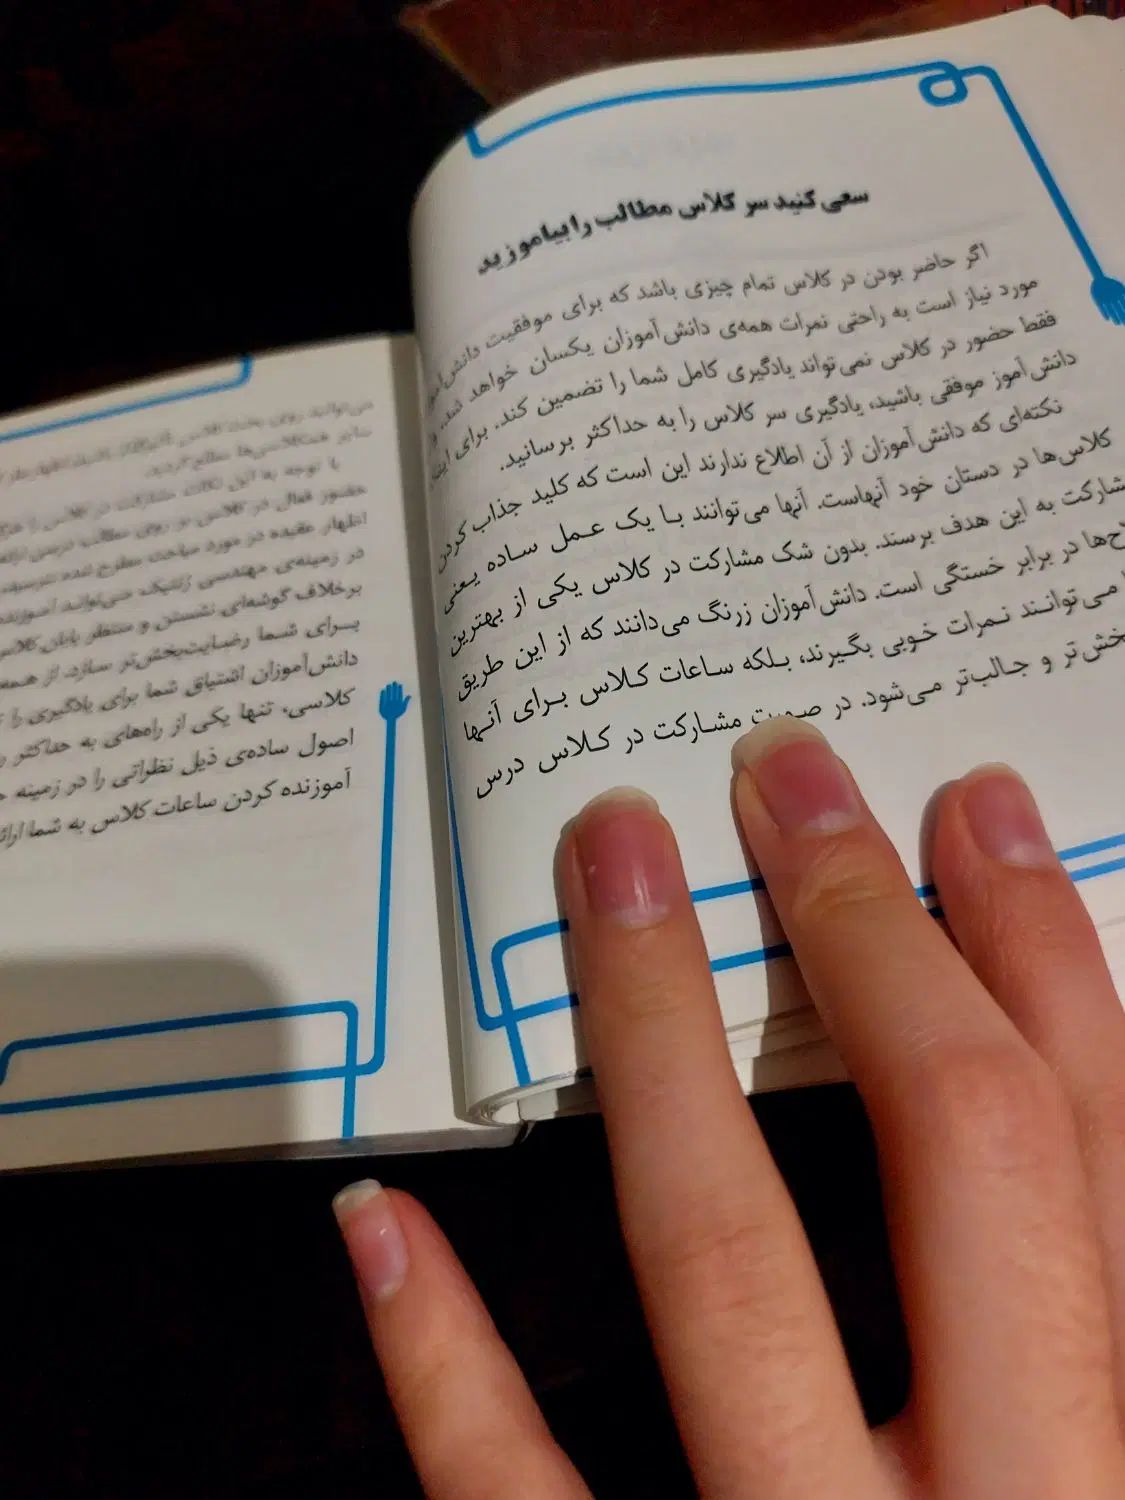 سعی کنید سر کلاس مطالب را بیاموزید
اگر حاضر بودن در کلاس تمام چیزی باشد که برای موفقیت
مورد نیاز است به راحتی نمرات همه‌ی دانش‌آموزان یکسان خواهد شد.
فقط حضور در کلاس نمی‌تواند یادگیری کامل شما را تضمین کند. برای
دانش‌آموز موفقی باشید، یادگیری سر کلاس را به حداکثر برسانید.
نکته‌ای که دانش‌آموزان از آن اطلاع ندارند این است که کلید جذاب کردن
کلاس‌ها در دستان خود آنهاست. آنها می‌توانند با یک عمل ساده یعنی
مشارکت به این هدف برسند. بدون شک مشارکت در کلاس یکی از بهترین
در برابر خستگی است. دانش‌آموزان زرنگ می‌دانند که از این طریق
می‌توانند نمرات خوبی بگیرند، بلکه ساعات کلاس برای آنها
و جالب‌تر می‌شود. در صورت مشارکت در کلاس درس
با توجه به این نکات مشارکت در کلاس را
حضور فعال در کلاس بر روی مطالب درسی
اظهار عقیده در مورد مباحث مطرح شده
در زمینه‌ی مهندسی ژنتیک می‌تواند
برخلاف گوشه‌ای نشستن و منتظر پایان کلاس
برای شما رضایت‌بخش‌تر سازد. از همه
دانش‌آموزان اشتیاق شما برای یادگیری را
کلاسی، تنها یکی از راه‌های به حداکثر
اصول ساده‌ی ذیل نظراتی را در زمینه
آموزنده کردن ساعات کلاس به شما